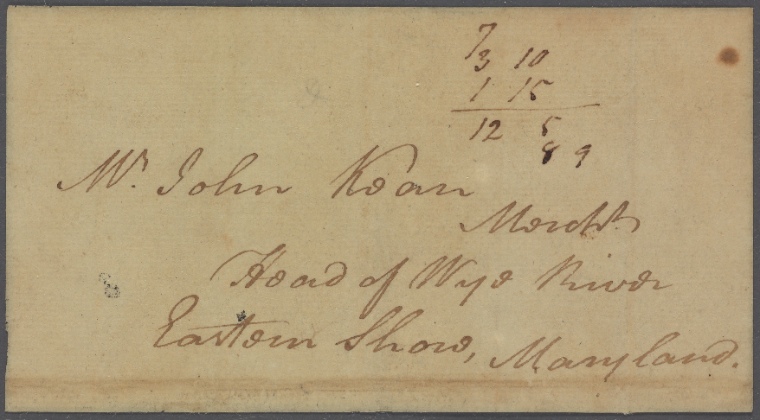 7
3 10
1 15
12 5
8 9
Mr. John Kean
Mercht
Head of Wye River
Eastern Shore, Maryland.